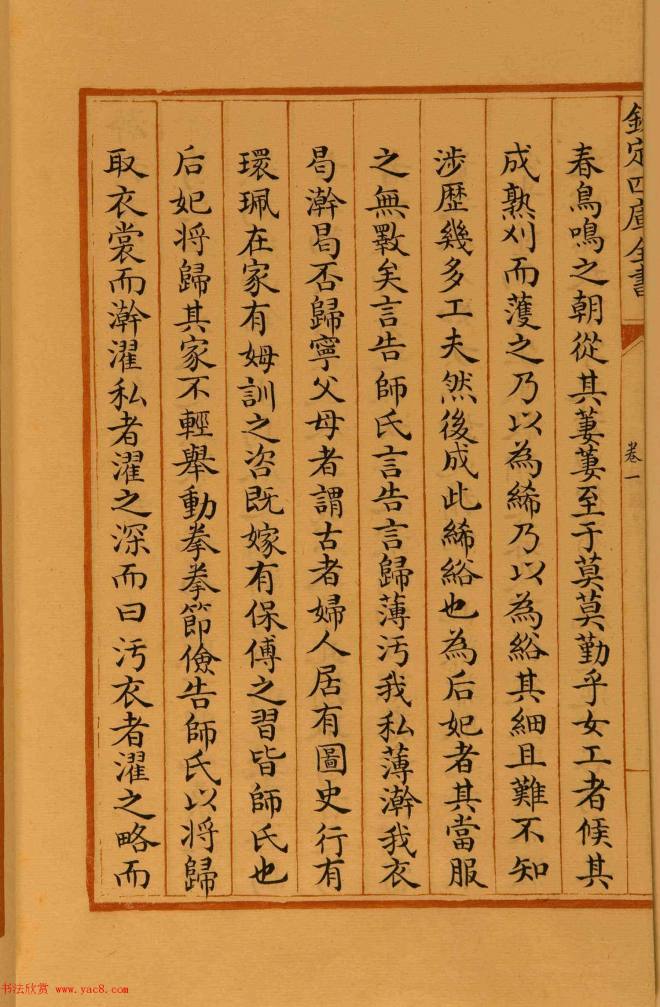 欽定四庫全書
卷一
春鳥鳴之朝從其萋萋至于莫莫勤乎女工者候其
成熟刈而䕶之乃以為絺乃以為綌其細且難不知
涉歴幾多工夫然後成此絺綌也為后妃者其當服
之無斁矣言告師氏言告言歸薄汚我私薄澣我衣
曷澣曷否歸寧父母者謂古者婦人居有圖史行有
環珮在家有姆訓之咨既嫁有保傅之習皆師氏也
后妃將歸其家不輕舉動拳拳節儉告師氏以將歸
取衣裳而澣濯私者濯之深而曰汚衣者濯之略而
书法欣赏 www.yac8.com